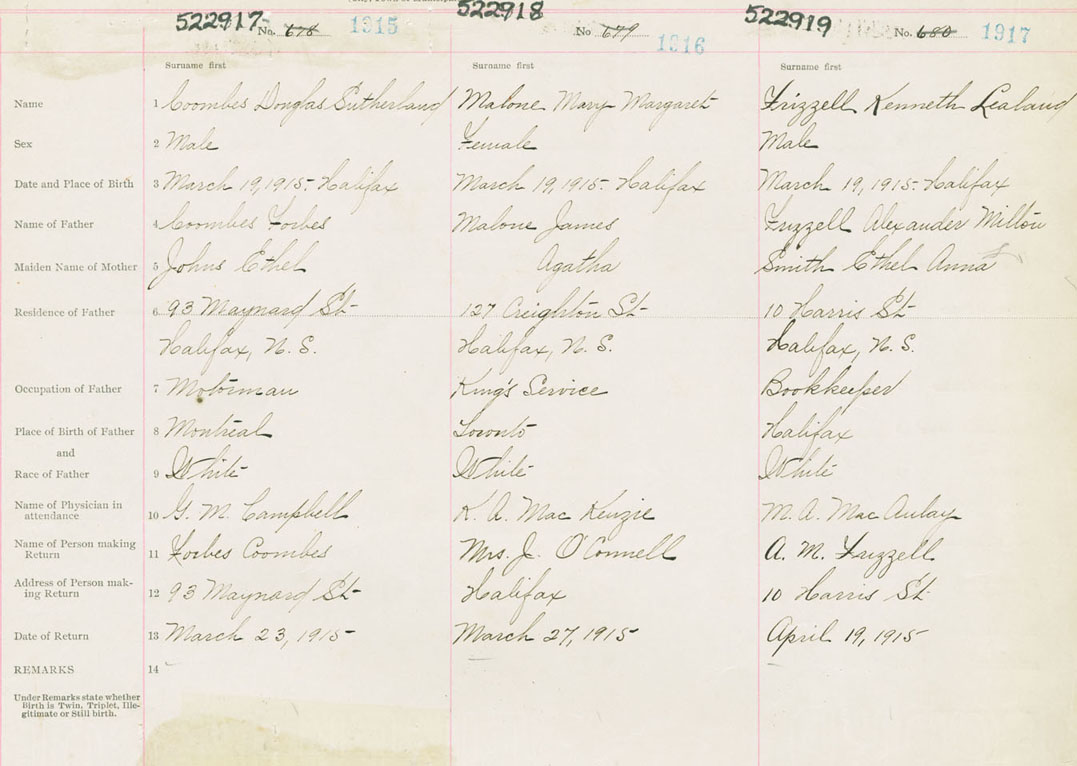 522917 No. 678 1915 522918 No 679 1916 522919 No. 680 1917
Surname first Surname first Surname first
Name 1 Coombes Douglas Sutherland Malone Mary Margaret Frizzell Kenneth Lealand
Sex 2 Male Female Male
Date and Place of Birth 3 March 19, 1915 - Halifax March 19, 1915 - Halifax March 19, 1915 - Halifax
Name of Father 4 Coombes Forbes Malone James Frizzell Alexander Milton
Maiden Name of Mother 5 Johns Ethel Agatha Smith Ethel Anna
Residence of Father 6 93 Maynard St 127 Creighton St 10 Harris St
Halifax, N. S. Halifax, N. S. Halifax, N. S.
Occupation of Father 7 Motorman King's Service Bookkeeper
Place of Birth of Father 8 Montreal Toronto Halifax
and
Race of Father 9 White White White
Name of Physician in
attendance 10 G. M. Campbell K. A. Mac Kenzie M. A. Mac Aulay
Name of Person making
Return 11 Forbes Coombes Mrs. J. O'Connell A. M. Frizzell
Address of Person mak-
ing Return 12 93 Maynard St Halifax 10 Harris St.
Date of Return 13 March 23, 1915 March 27, 1915 April 19, 1915
REMARKS 14
Under Remarks state whether
Birth is Twin, Triplet, Ille-
gitimate or Still birth.